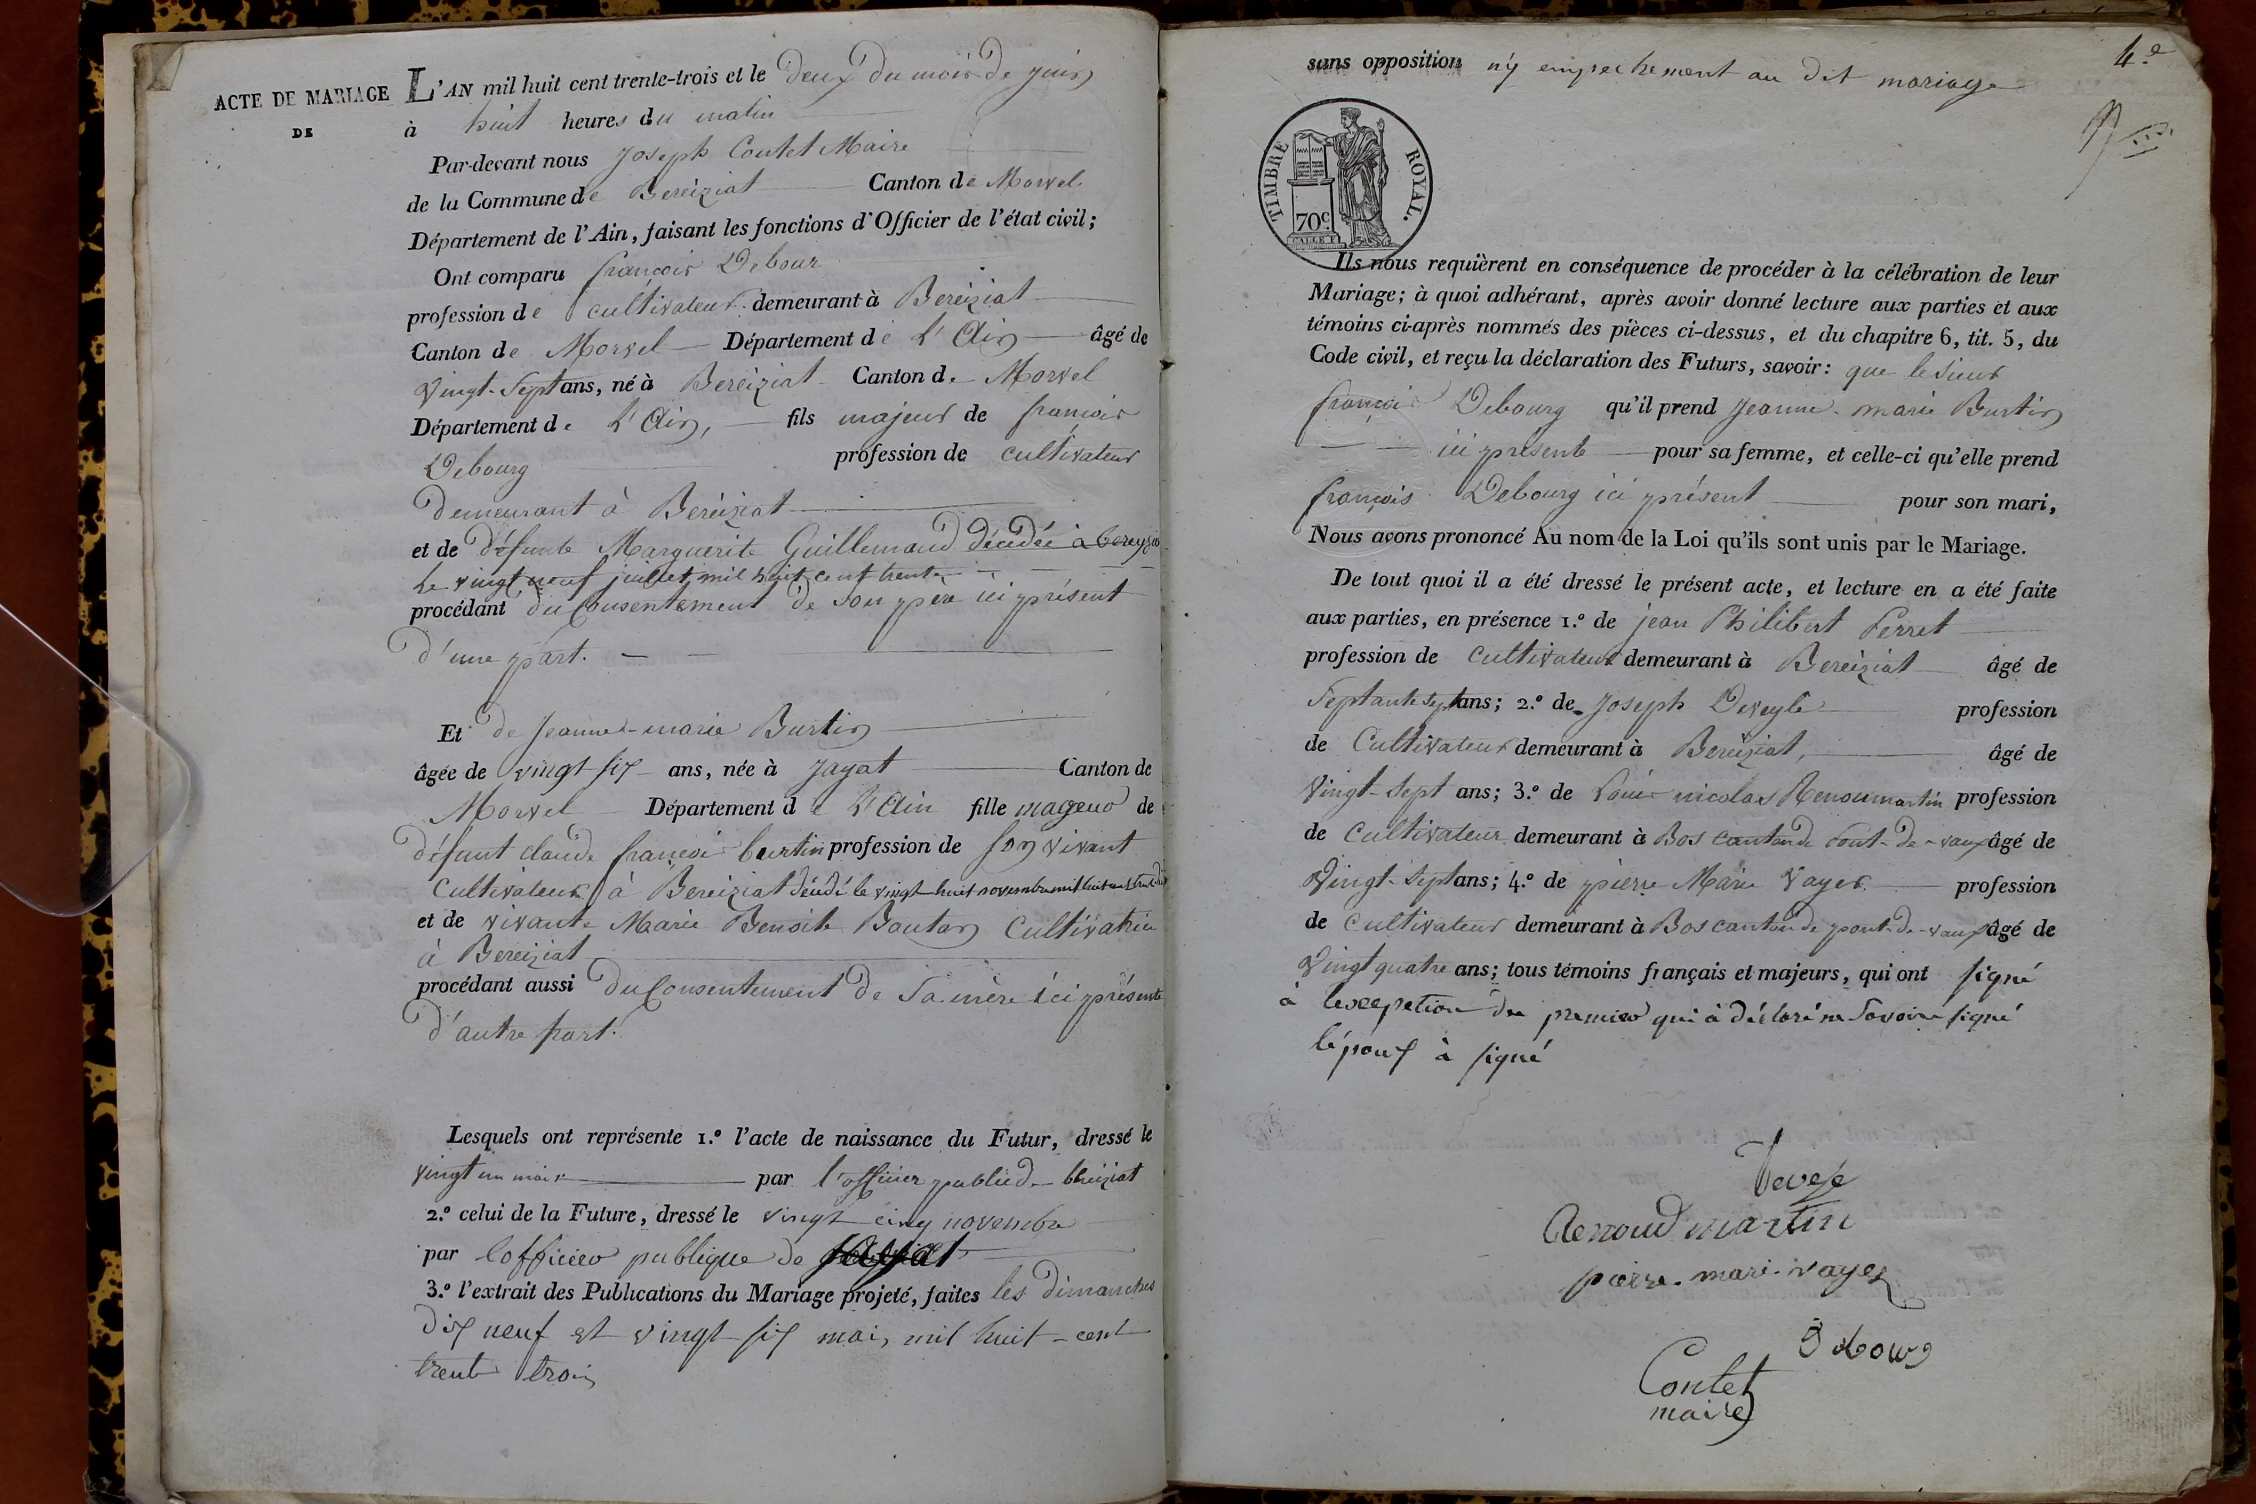 ACTE DE MARIAGE
DE
L'AN mil huit cent trente-trois et le deux du mois de juin
à huit heures du matin
Par-devant nous Joseph Contet Maire
de la Commune de Bereiziat Canton de Morvel
Département de l'Ain, faisant les fonctions d'Officier de l'état civil;
Ont comparu françois Debour
profession de cultivateur demeurant à Bereiziat
Canton de Morvel Département de L'Ain âgé de
Vingt-Sept ans, né à Bereiziat Canton de Morvel
Département de L'Ain, fils majeur de françois
Debourg profession de cultivateur
Demeurant à Bereiziat
et de défunte Marguerite Guillemaud décédée à
Le vingt neuf juillet mil huit cent trente
procédant du Consentement de son père ici présent
d'une part.
Et de Jeanne-marie Burtin
âgée de vingt six ans, née à Jayat Canton de
Morvel Département de L'Ain fille mageur de
défunt claude françois burtin profession de son vivant
Cultivateur à Bereiziat décédé le vingt huit novembre mil huit cent
et de vivante Marie Benoite Bouton Cultivatrice
à Bereiziat
procédant aussi du Consentement de Sa mère ici présente
D'autre part.
Lesquels ont représente 1.º l'acte de naissance du Futur, dressé le
vingt un mars par l'officier public de béréiziat
2.º celui de la Future, dressé le vingt cinq novembre
par lofficier publique de Jayat
3.º l'extrait des Publications du Mariage projeté, faites les dimanches
Dix neuf et vingt six mai, mil huit-cent
trente trois
4.e
sans opposition n'y empechement au dit mariage
TIMBRE ROYAL.
70c
Ils nous requièrent en conséquence de procéder à la célébration de leur
Mariage; à quoi adhérant, après avoir donné lecture aux parties et aux
témoins ci-après nommés des pièces ci-dessus, et du chapitre 6, tit. 5, du
Code civil, et reçu la déclaration des Futurs, savoir: que le Sieur
françois Debourg qu'il prend Jeanne-marie Burtin
ici présente pour sa femme, et celle-ci qu'elle prend
françois Debourg ici présent pour son mari,
Nous avons prononcé Au nom de la Loi qu'ils sont unis par le Mariage.
De tout quoi il a été dressé le présent acte, et lecture en a été faite
aux parties, en présence 1.º de jean Philibert Perret
profession de Cultivateur demeurant à Bereiziat âgé de
Septante sept ans; 2.º de Joseph Deveyle profession
de Cultivateur demeurant à Bereiziat, âgé de
Vingt-Sept ans; 3.º de Louis nicolas Renoumartin profession
de Cultivateur demeurant à Bos canton de Pont-de-vaux âgé de
Vingt-Sept ans; 4.º de pierre Marie Vayer profession
de Cultivateur demeurant à Bos canton de pont-de-vaux âgé de
Vingt quatre ans; tous témoins français et majeurs, qui ont signé
à lexception du premier qui à déclaré ne Savoir signé
lépoux à signé
Devele
Renoud martin
pierre. mari. vayer
Debourg
Contet
maire